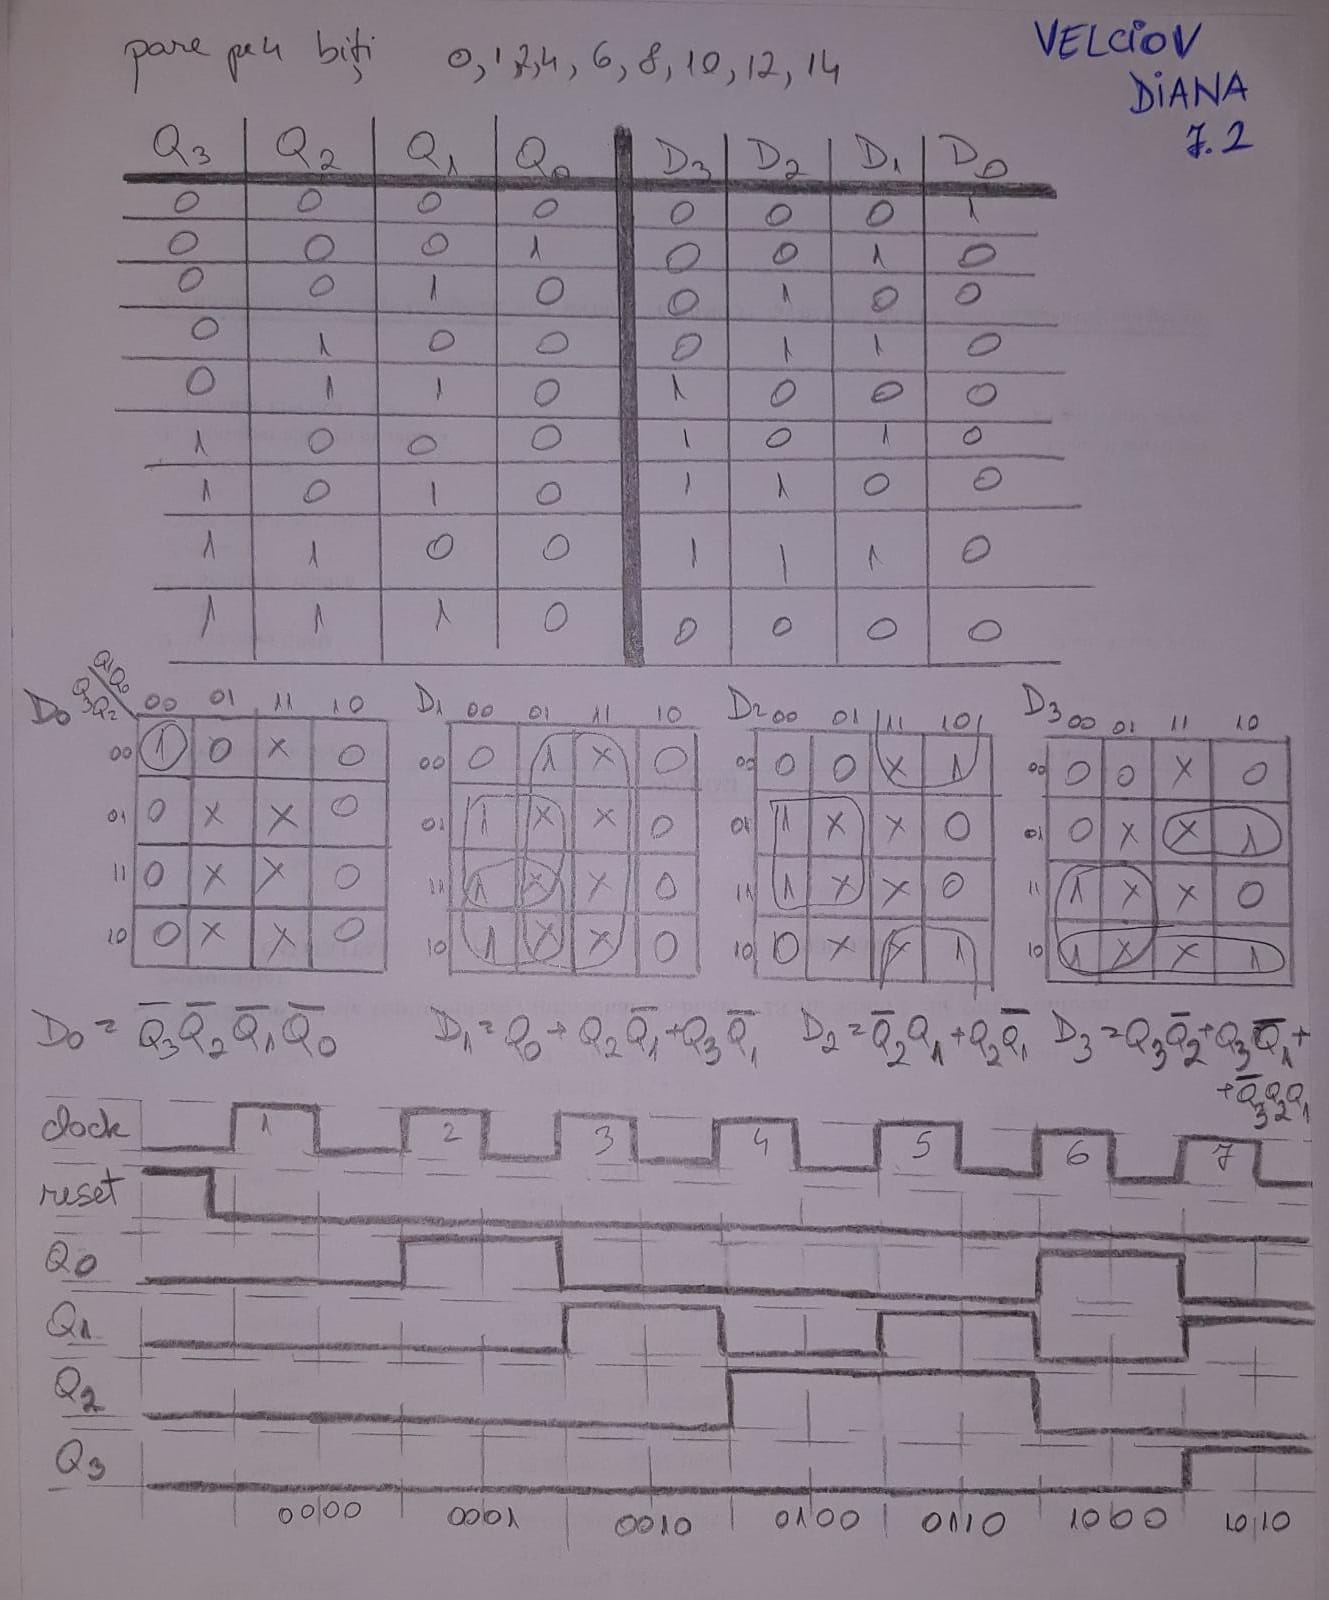 pare pe 4 biți 0, 1, 2, 4, 6, 8, 10, 12, 14
VELCIOV
DIANA
7.2
Q3 Q2 Q1 Q0 D3 D2 D1 D0
0 0 0 0 0 0 0 1
0 0 0 1 0 0 1 0
0 0 1 0 0 1 0 0
0 1 0 0 0 1 1 0
0 1 1 0 1 0 0 0
1 0 0 0 1 0 1 0
1 0 1 0 1 1 0 0
1 1 0 0 1 1 1 0
1 1 1 0 0 0 0 0
D0 Q3Q2 Q1Q0 00 01 11 10
00 1 0 x 0
01 0 x x 0
11 0 x x 0
10 0 x x 0
D1 00 01 11 10
00 0 1 x 0
01 1 x x 0
11 1 x x 0
10 1 x x 0
D2 00 01 11 10
00 0 0 x 1
01 1 x x 0
11 1 x x 0
10 0 x x 1
D3 00 01 11 10
00 0 0 x 0
01 0 x x 1
11 1 x x 0
10 1 x x 1
D0 = Q̅3Q̅2Q̅1Q̅0
D1 = Q0 + Q2Q̅1 + Q3Q̅1
D2 = Q̅2Q1 + Q2Q̅1
D3 = Q3Q̅2 + Q3Q̅1 +
+ Q̅3Q2Q1
clock 1 2 3 4 5 6 7
reset
Q0
Q1
Q2
Q3
0000 0001 0010 0100 0110 1000 1010